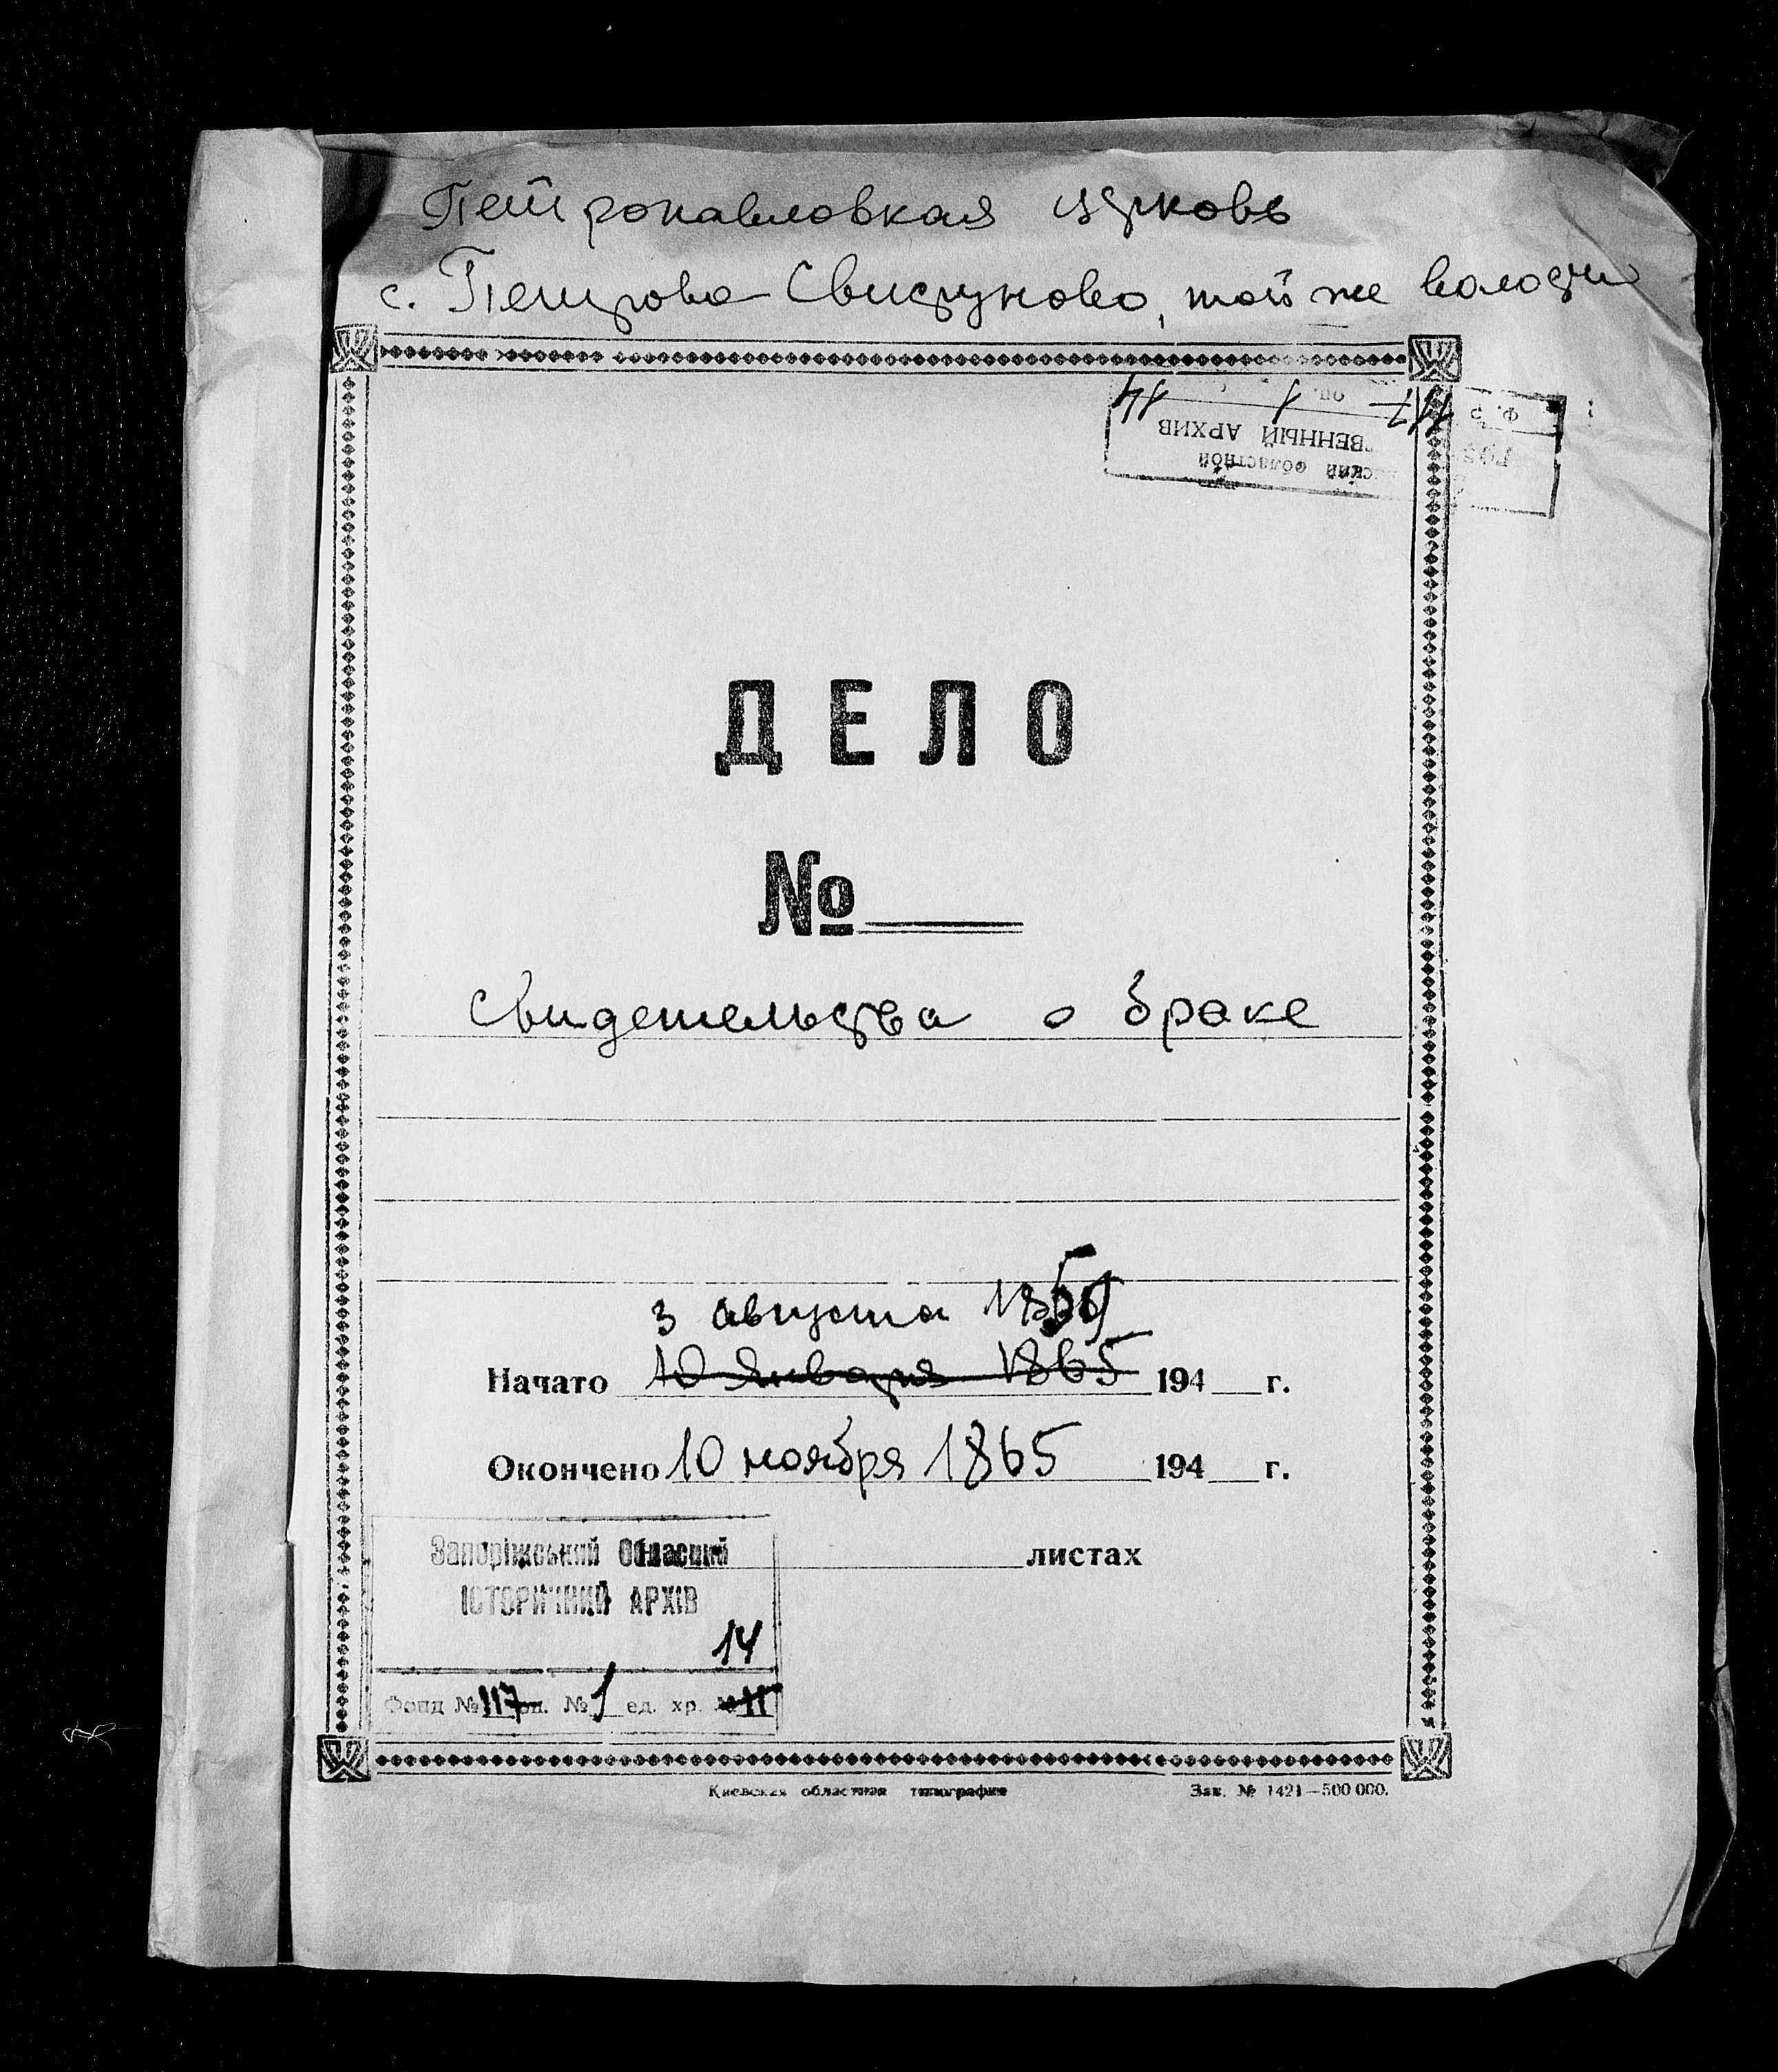 Петропавловкая церковь
с. Петрово-Свистуново, той же волости
Ф. Р 117 оп. 1 14
ВЕННЫЙ АРХИВ
ский областной
ДЕЛО
№
Свидетельства о браке
3 августа 1859
Начато 10 января 1865 194 г.
Окончено 10 ноября 1865 194 г.
листах
Запоріжський Обласний
ІСТОРИЧНИЙ АРХІВ
14
Фонд № 117 оп. № 1 ед. хр. № 11
Киевская областная типография Зак. № 1421—500 000.